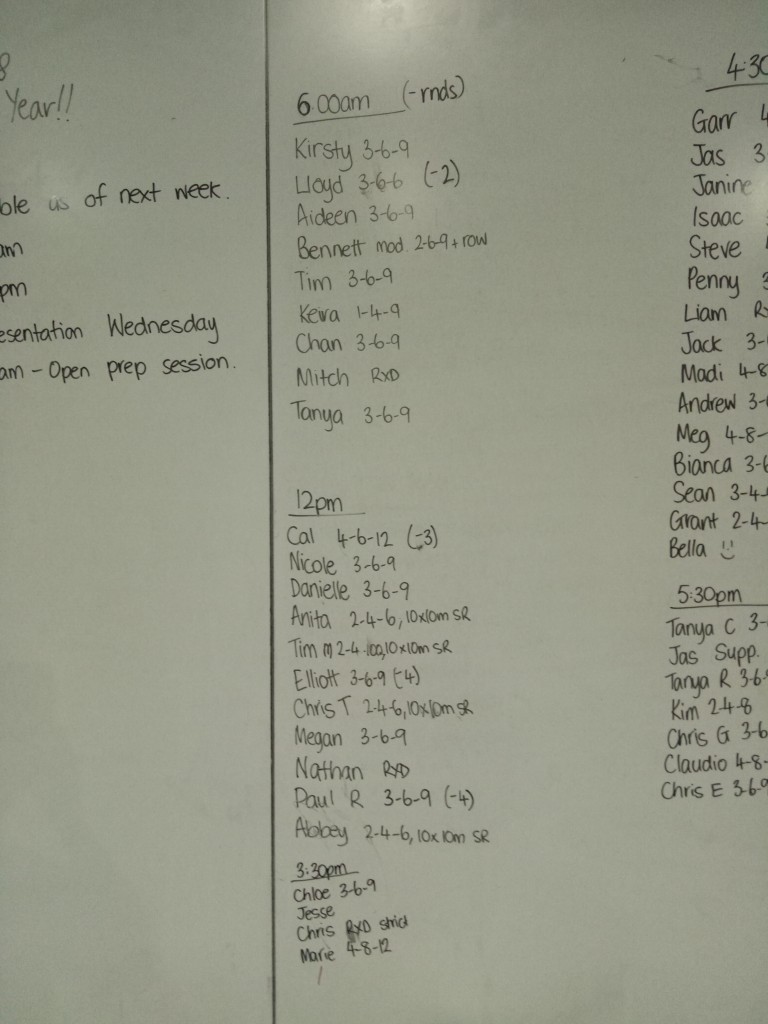 8
Year!!
ble us of next week.
am
pm
esentation Wednesday
am - Open prep session.
6:00am (-rnds)
Kirsty 3-6-9
Lloyd 3-6-6 (-2)
Aideen 3-6-9
Bennett mod 2-6-9 + row
Tim 3-6-9
Keira 1-4-9
Chan 3-6-9
Mitch RXD
Tanya 3-6-9
12pm
Cal 4-6-12 (-3)
Nicole 3-6-9
Danielle 3-6-9
Anita 2-4-6, 10x10m SR
Tim M 2-4- 10x10m SR
Elliott 3-6-9 (-4)
Chris T 2-4-6, 10x10m SR
Megan 3-6-9
Nathan RXD
Paul R 3-6-9 (-4)
Abbey 2-4-6, 10x10m SR
3:30pm
Chloe 3-6-9
Jesse
Chris RXD strict
Marie 4-8-12
4:30
Garr 4
Jas 3
Janine
Isaac
Steve
Penny 3
Liam R
Jack 3-
Madi 4-8
Andrew 3-
Meg 4-8-
Bianca 3-6
Sean 3-4-
Grant 2-4-
Bella :)
5:30pm
Tanya C 3-
Jas Supp.
Tanya R 3-6-9
Kim 2-4-8
Chris G 3-6
Claudio 4-8-
Chris E 3-6-9